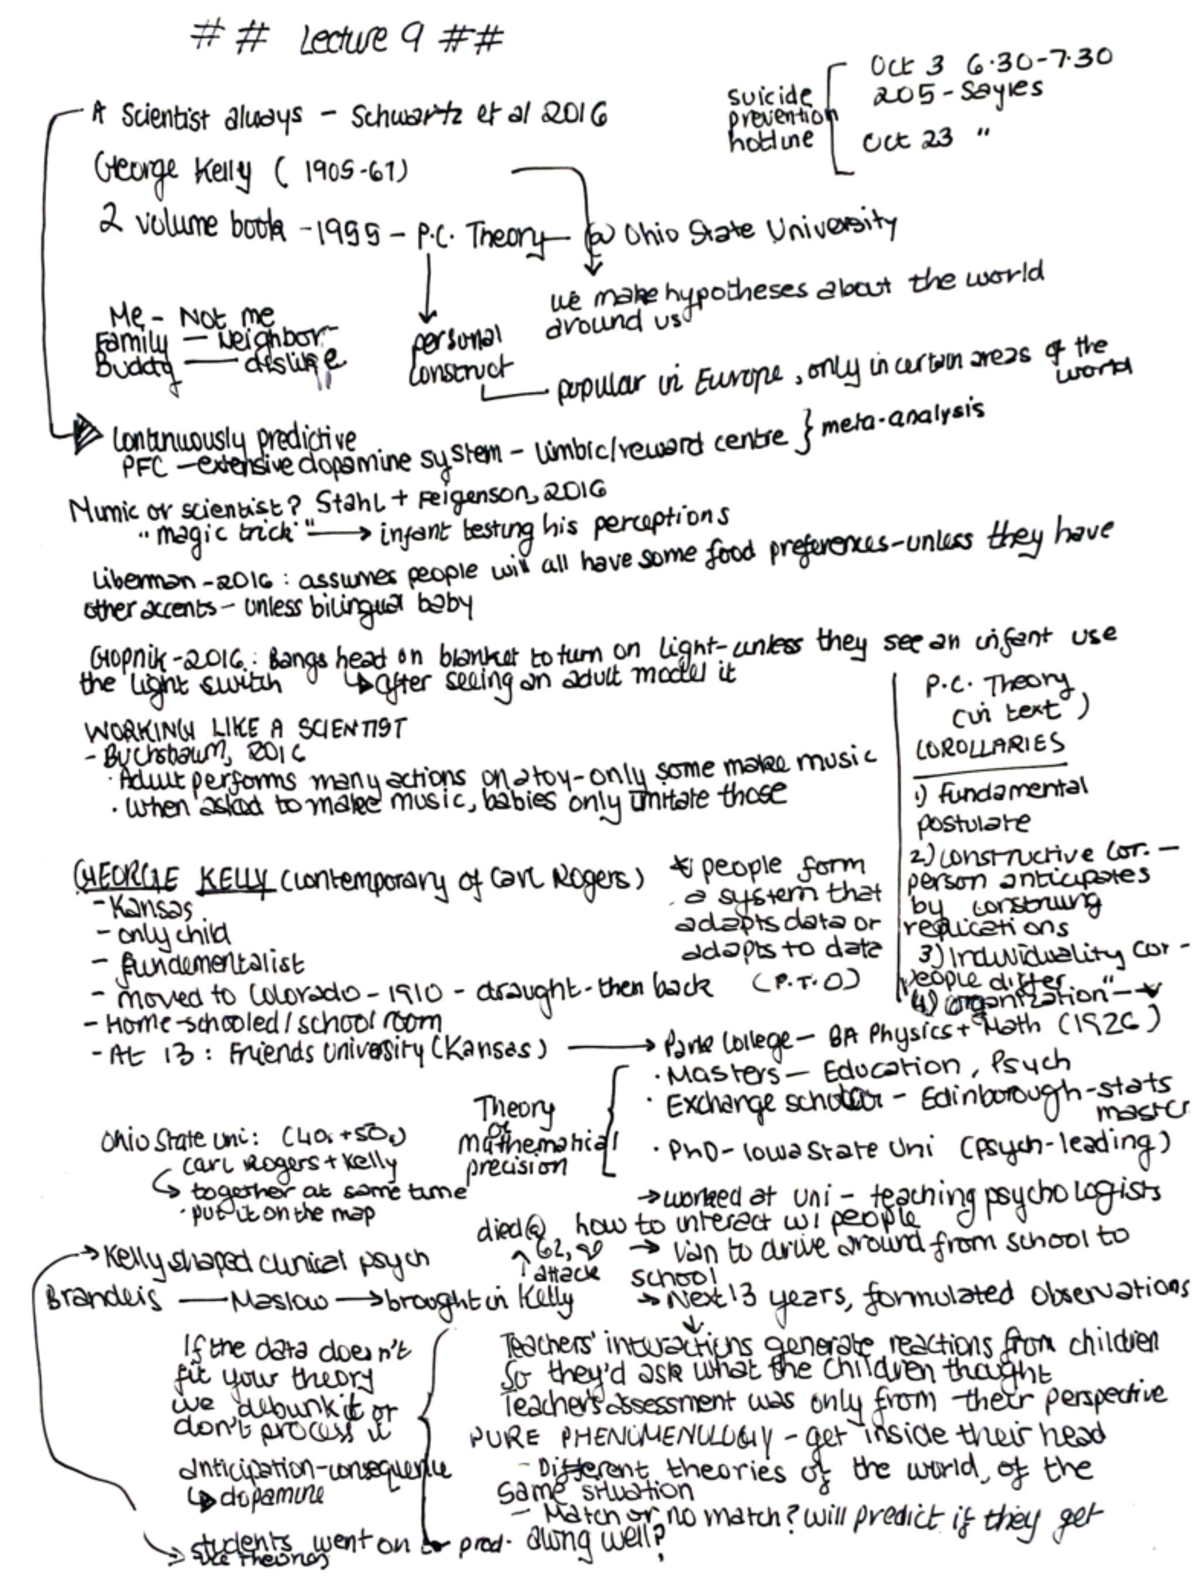 ## Lecture 9 ##
suicide prevention hotline
Oct 3 6.30-7.30
205 - Sayles
Oct 23 "
A Scientist always - Schwartz et al 2016
George Kelly ( 1905-67)
2 volume book - 1955 - P.C. Theory - @ Ohio State University
we make hypotheses about the world
around us
Me - Not me
Family - Neighbor
Buddy - dislike
personal
construct
popular in Europe, only in certain areas of the
world
Continuously predictive
PFC - extensive dopamine system - limbic/reward centre } meta-analysis
Mimic or scientist? Stahl + Feigenson, 2016
"magic trick" → infant testing his perceptions
Liberman - 2016 : assumes people will all have some food preferences - unless they have
other accents - unless bilingual baby
Gopnik - 2016 : Bangs head on blanket to turn on light - unless they see an infant use
the light switch ↳ after seeing an adult model it
WORKING LIKE A SCIENTIST
- Buchsbaum, 2016
· Adult performs many actions on a toy - only some make music
· When asked to make music, babies only imitate those
P.C. Theory
(in text)
COROLLARIES
1) fundamental
postulate
2) constructive cor. -
person anticipates
by construing
replications
3) Individuality cor -
people differ
4) organization" →
GEORGE KELLY (contemporary of Carl Rogers)
- Kansas
- only child
- fundementalist
- moved to Colorado - 1910 - draught - then back
- Home-schooled / school room
- At 13 : Friends University (Kansas) →
* people form
a system that
adapts data or
adapts to data
(P.T.O)
Park College - BA Physics + Math (1926)
· Masters - Education, Psych
· Exchange scholar - Edinborough - stats
master
· PhD - Iowa State Uni (psych-leading)
Theory
of
mathematical
precision
Ohio State Uni : (40s + 50s)
Carl Rogers + Kelly
↳ together at same time
· put it on the map
→ worked at uni - teaching psychologists
how to interact w/ people
→ Van to drive around from school to
school
→ Next 13 years, formulated observations
died @
62,
↑ attack
→ Kelly shaped clinical psych
Brandeis - Maslow → brought in Kelly
If the data doesn't
fit your theory
we debunk it or
don't process it
anticipation - consequence
↳ dopamine
Teachers' interactions generate reactions from children
So they'd ask what the children thought
Teacher's assessment was only from their perspective
PURE PHENOMENOLOGY - get inside their head
- Different theories of the world, of the
same situation
- Match or no match? will predict if they get
along well?
→ students went on to prod.
theories